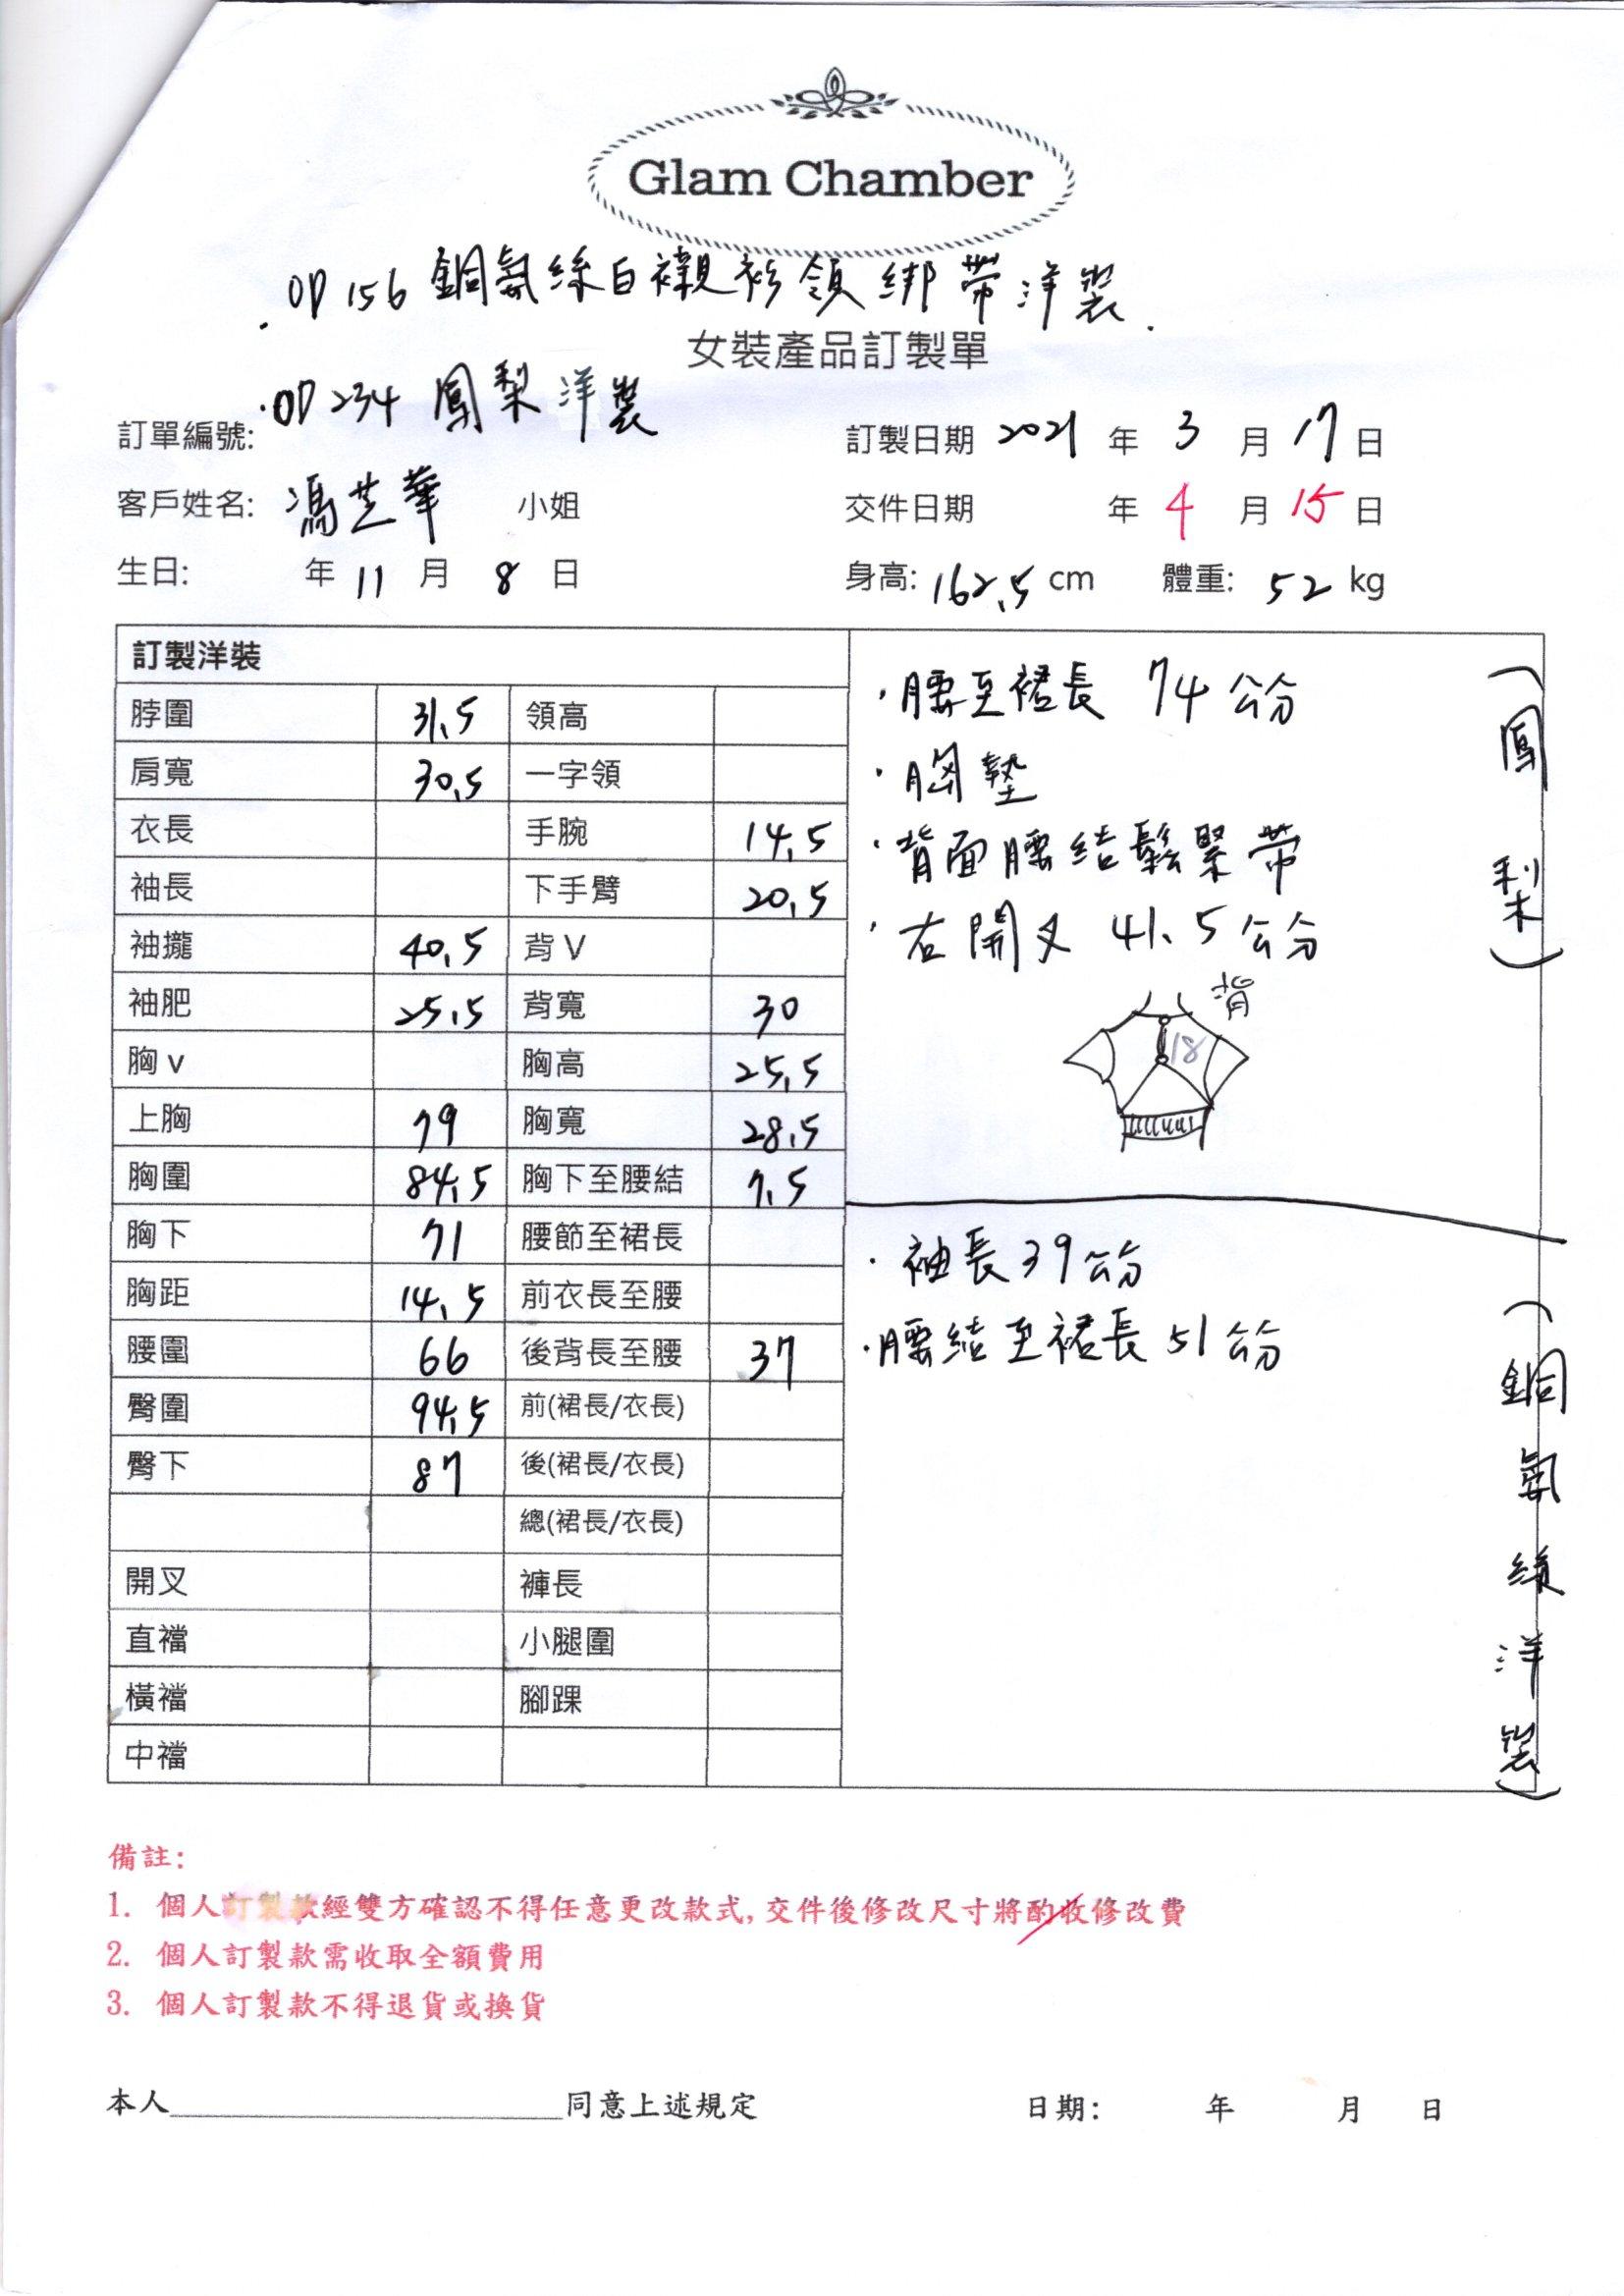 Glam Chamber
·OP156 銅氨絲白襯衫領綁帶洋裝
女裝產品訂製單
·OP234 鳳梨洋裝
訂單編號:
訂製日期 2021 年 3 月 17 日
客戶姓名: 馮芝華 小姐
交件日期 年 4 月 15 日
生日: 年 11 月 8 日
身高: 162.5 cm 體重: 52 kg
訂製洋裝
脖圍 31.5 領高
肩寬 30.5 一字領
衣長 手腕 14.5
袖長 下手臂 20.5
袖攏 40.5 背V
袖肥 25.5 背寬 30
胸v 胸高 25.5
上胸 79 胸寬 28.5
胸圍 84.5 胸下至腰結 7.5
胸下 71 腰節至裙長
胸距 14.5 前衣長至腰
腰圍 66 後背長至腰 37
臀圍 94.5 前(裙長/衣長)
臀下 87 後(裙長/衣長)
總(裙長/衣長)
開叉 褲長
直襠 小腿圍
橫襠 腳踝
中襠
·腰至裙長 74 公分
·胸墊
·背面腰結鬆緊帶
·右開叉 41.5 公分
背
18
(鳳梨)
·袖長39公分
·腰結至裙長51公分
(銅氨絲洋裝)
備註:
1. 個人訂製款經雙方確認不得任意更改款式,交件後修改尺寸將酌收修改費
2. 個人訂製款需收取全額費用
3. 個人訂製款不得退貨或換貨
本人____________________同意上述規定
日期: 年 月 日